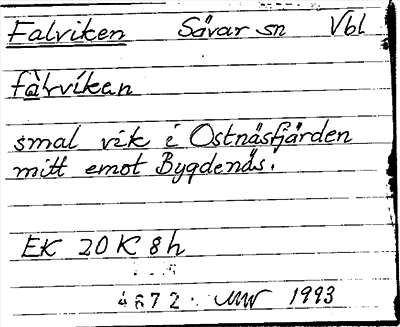 Falviken Sävar sn Vbl
fàlvíkan
smal vik i Ostnäsfjärden
mitt emot Bygdenäs.
EK 20 K 8h
4672. MW 1993